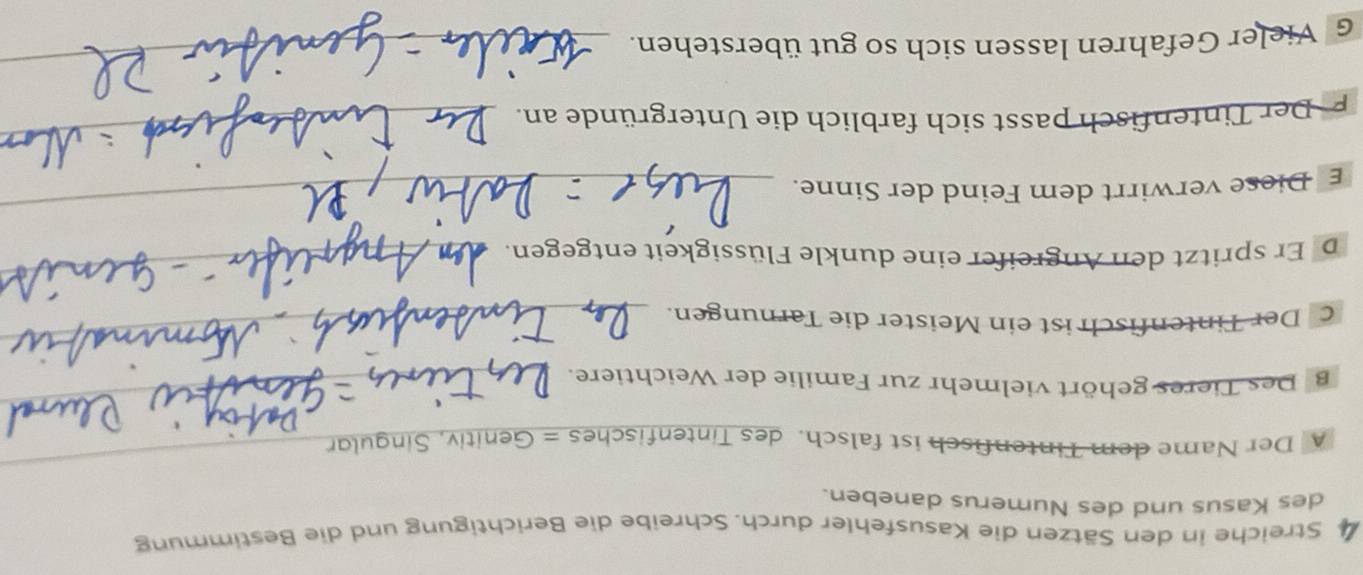 4 Streiche in den Sätzen die Kasusfehler durch. Schreibe die Berichtigung und die Bestimmung
des Kasus und des Numerus daneben.
A Der Name dem Tintenfisch ist falsch. des Tintenfisches = Genitiv, Singular
B Des Tieres gehört vielmehr zur Familie der Weichtiere. Des Tieres = Genitiv Plural
Dativ
C Der Tintenfisch ist ein Meister die Tarnungen. Der Tintenfisch = Nominativ
D Er spritzt den Angreifer eine dunkle Flüssigkeit entgegen. den Angreifer = Genit
E Diese verwirrt dem Feind der Sinne. Diese = Dativ, Pl
F Der Tintenfisch passt sich farblich die Untergründe an. Der Tintenfisch = Nom
G Vieler Gefahren lassen sich so gut überstehen. = Genitiv Pl